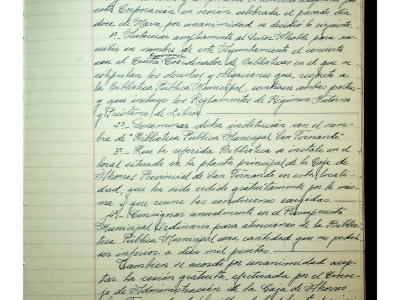 esta Corporación en sesión celebrada el pasado día
doce de Marzo, por unanimidad se decidió lo siguiente:
1º- Autorizar ampliamente al Señor Alcalde para sus-
cribir en nombre de este Ayuntamiento el convierto
Provincial
con el Centro Coordinador de Bibliotecas en el que se
estipulan los derechos y obligaciones que, respecto a
la Biblioteca Pública Municipal, contraen ambas partes,
y que incluye los Reglamentos de Régimen Interno
y Préstamo de Libros.
2º- Denominar dicha institución con el nom-
bre de "Biblioteca Pública Municipal San Fernando"
3º- Que la referida Biblioteca se instale en el
local situado en la planta principal de la Caja de
Ahorros Provincial de San Fernando en esta locali-
dad, que ha sido cedido gratuitamente por la mis-
ma y que reune las condiciones exigidas.
4º- Consignar anualmente en el Presupuesto
Municipal Ordinario para atenciones de la Biblio-
teca Pública Municipal una cantidad que no podrá
ser inferior a diez mil pesetas.
Tambien se acordo por unanimidad acep-
tar la cesión gratuita, efectuada por el Conse-
jo de Administración de la Caja de Ahorros